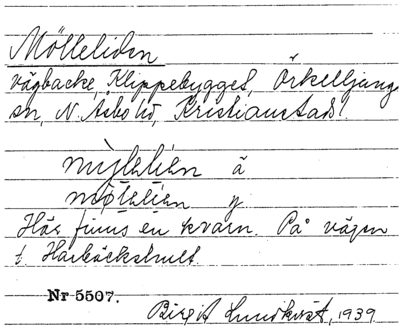 Mölleliden
vägbacke, Klippebygget, Örkelljunga
sn, N. Åsbo hd, Kristianstads l.
å
y
Här finns en kvarn. På vägen
t. Harbäckshult.
Nr 5507.
Birgit Lundkvist, 1939